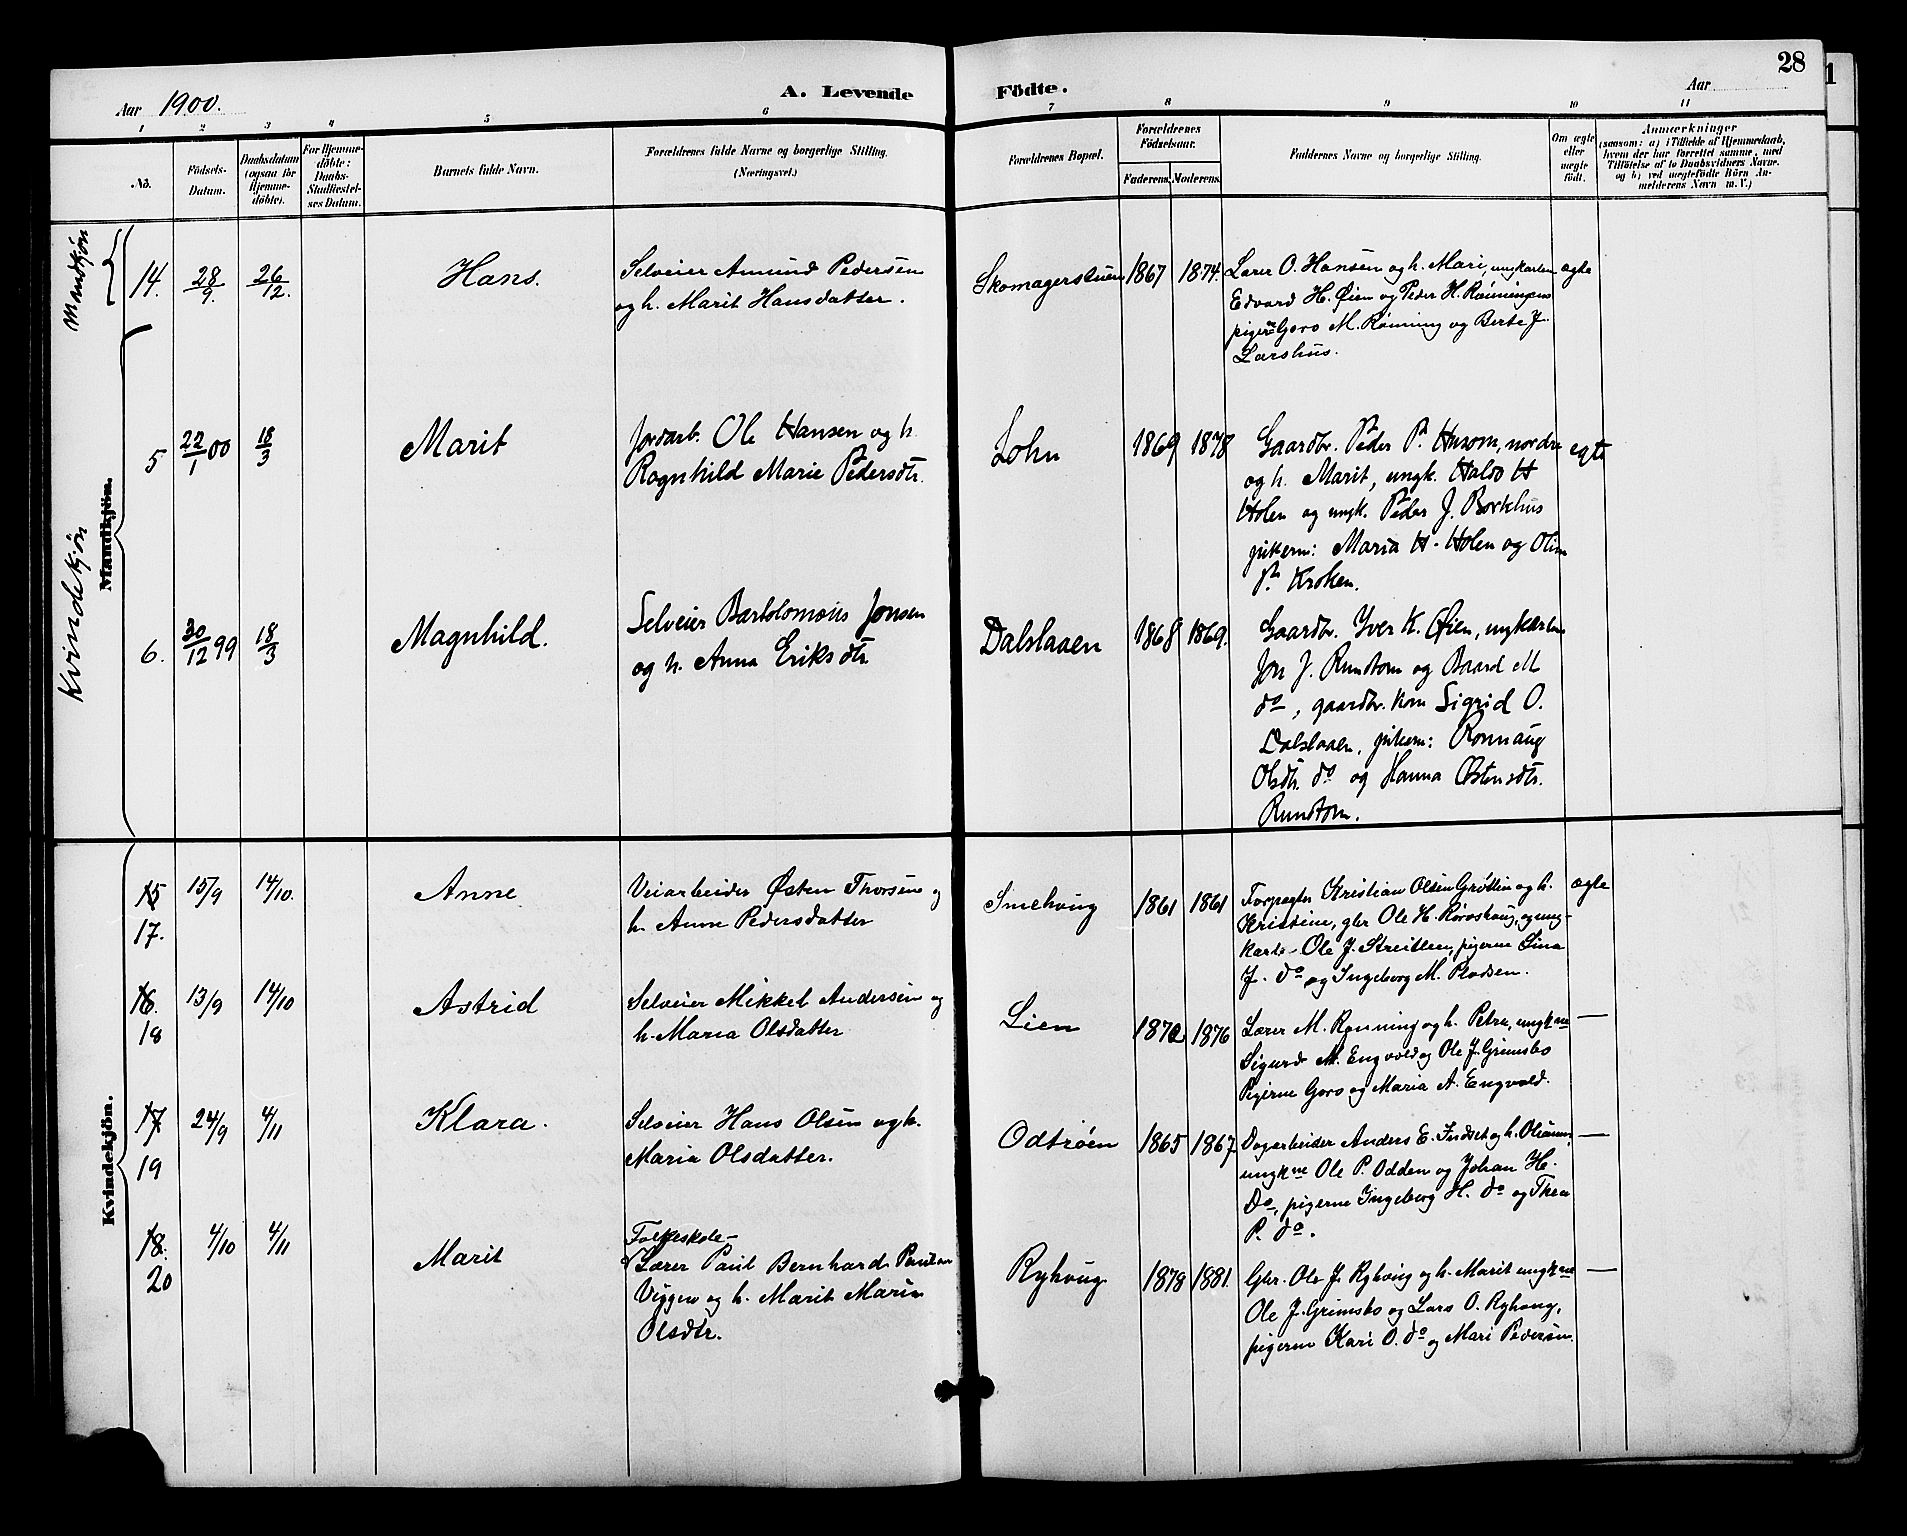 28
Aar 1900.
A. Levende Födte.
Aar
1 2 3 4 5 6 7 8 9 10 11
No.
Födsels-Datum.
Daabsdatum (ogsaa for Hjemme-döbte).
For Hjemme-döbte: Daabs-Stadfæstel-ses Datum.
Barnets fulde Navn.
Forældrenes fulde Navne og borgerlige Stilling.
(Næringsvei.)
Forældrenes Bopæl.
Forældrenes Födselsaar.
Faderens. Moderens.
Faddernes Navne og borgerlige Stilling.
Om ægte eller uægte födt.
Anmærkninger
(saasom: a) i Tilfælde af Hjemmedaab,
hvem der har forrettet samme, med
Tilföielse af to Daabsvidners Navne.
og b) ved uægtefödte Börn An-
melderens Navn m. V.)
Mandkjøn
14. 28/9. 26/12. Hans.
Selveier Amund Pedersen
og h. Marit Hansdatter.
Skomagerstuen 1867 1874.
Lærer O. Hansen og h. Mari, ungkarlene
Edvard H. Øien og Peder H. Rønningens
pigerne Goro M. Rønning og Berte J.
Larshus.
ægte
Mandkjön.
Kvindekjøn
5 22/1 00 18/3 Marit
Jordarb. Ole Hansen og h.
Ragnhild Marie Pedersdtr.
Lohn 1869 1878
Gaardbr. Peder P. Husom, nordre
og h. Marit, ungk. Halvo H
Holen og ungk. Peder J. Borkhus
pikern: Maria H. Holen og Oline
P. Kroken.
egte
6. 30/12 99 18/3 Magnhild.
Selveier Bartolomæus Jonsen
og h. Anna Eriksdtr.
Dalslaaen 1868 1869.
Gaardbr. Iver K. Øien, ungkarlene
Jon J. Rundtom og Baard M
do, gaardbr. kone Sigrid O.
Dalslaaen, pikern: Ronnaug
Olsdtr. do og Hanna Østensdtr.
Rundtom.
Kvindekjön.
15 17. 15/9 14/10. Anne
Veiarbeider Østen Thorsen og
h. Anne Pedersdatter
Smehaug 1861 1861
Forpagter Kristian Olsen Grøtlien og h.
Kristine, gbr Ole H. Røroshaug, og ung-
karls- Ole J. Streitlien, pigerne Sina
J. do og Ingeborg M. Pladsen.
ægte
16. 18 13/9 14/10 Astrid
Selveier Mikkel Andersen og
h. Maria Olsdatter
Lien 1872 1876
Lærer M. Rønning og h. Petra, ungkne
Sigurd M. Engvold og Ole J. Grimsbo
Pigerne Goro og Maria A. Engvold.
—
17 19 24/9 4/11 Klara.
Selveier Hans Olsen og h.
Maria Olsdatter.
Odtrøen 1865 1867
Dagarbeider Anders E. Indset og h. Oleanna,
ungkne Ole P. Odden og Johan H.
Do, pigerne Ingeborg H. do og Thea
P. do.
—
18. 20 4/10 4/11 Marit
Folkeskole-
Lærer Paul Bernhard Paulsen
Viggen og h. Marit Maria
Olsdtr.
Ryhaug 1878 1881.
Gbr. Ole J. Ryhaug og h. Marit ungkne
Ole J. Grimsbo og Lars O. Ryhaug,
pigerne Kari O. do og Mari Pedersen.
—